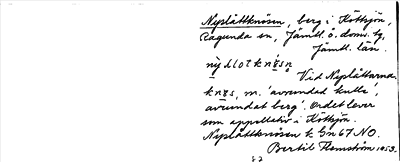 Nyslåttknösen, berg i Köttsjön,
Ragunda sn, Jämtl. ö. doms. tg,
Jämtl. län.
Vid Nyslåttarna.
m. 'avrundad kulle',
avrundat berg'. Ordet lever
som appellativ i Köttsjön.
Nyslåttknösen k. Gn 67 NO.
Bertil Flemström 1953.